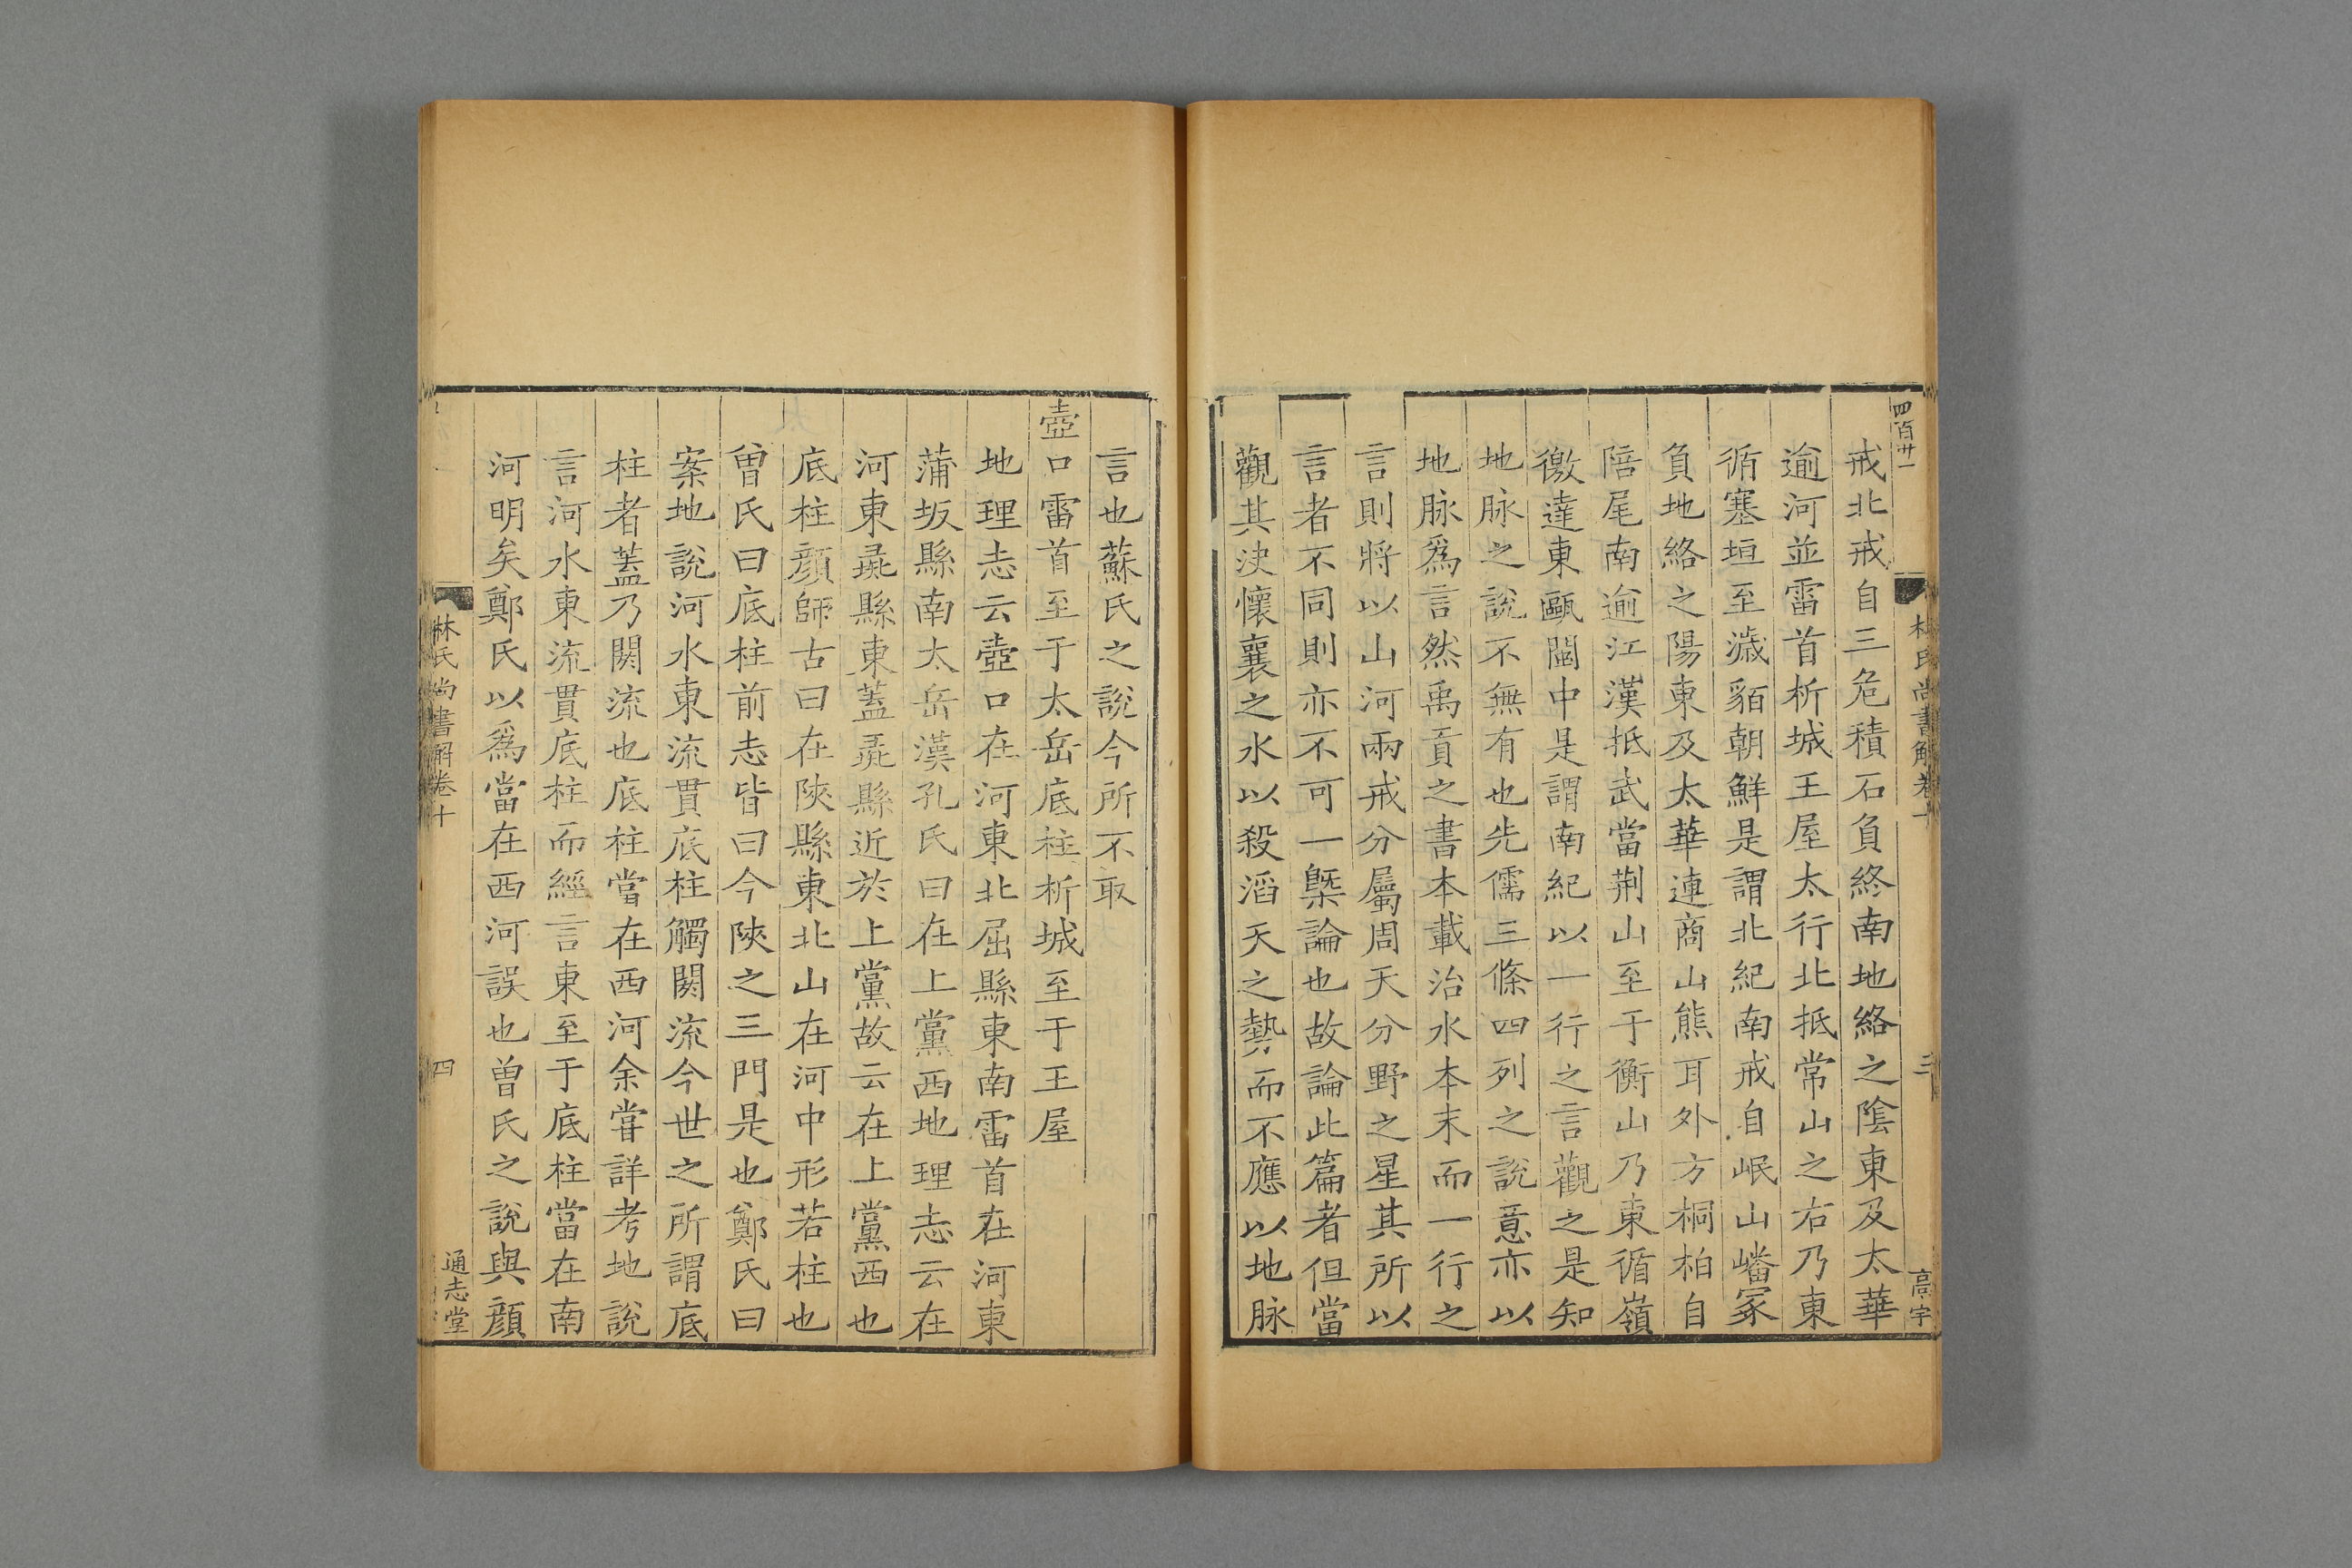 四百廿一
戒北戒自三危積石負終南地絡之陰東及太華
逾河並雷首析城王屋太行北抵常山之右乃東
循塞垣至濊貊朝鮮是謂北紀南戒自岷山嶓冢
負地絡之陽東及太華連商山熊耳外方桐柏自
陪尾南逾江漢抵武當荆山至于衡山乃東循嶺
徼達東甌閩中是謂南紀以一行之言觀之是知
地脉之說不無有也先儒三條四列之說意亦以
地脉爲言然禹貢之書本載治水本末而一行之
言則將以山河兩戒分屬周天分野之星其所以
言者不同則亦不可一槩論也故論此篇者但當
觀其決懷襄之水以殺滔天之勢而不應以地脉
林氏尚書解卷十
三
高宇
言也蘇氏之說今所不取
壺口雷首至于太岳底柱析城至于王屋
地理志云壺口在河東北屈縣東南雷首在河東
蒲坂縣南太岳漢孔氏曰在上黨西地理志云在
河東彘縣東蓋彘縣近於上黨故云在上黨西也
底柱顔師古曰在陝縣東北山在河中形若柱也
曾氏曰底柱前志皆曰今陝之三門是也鄭氏曰
案地說河水東流貫底柱觸閼流今世之所謂底
柱者蓋乃閼流也底柱當在西河余嘗詳考地說
言河水東流貫底柱而經言東至于底柱當在南
河明矣鄭氏以爲當在西河誤也曾氏之說與顔
林氏尚書解卷十
四
通志堂